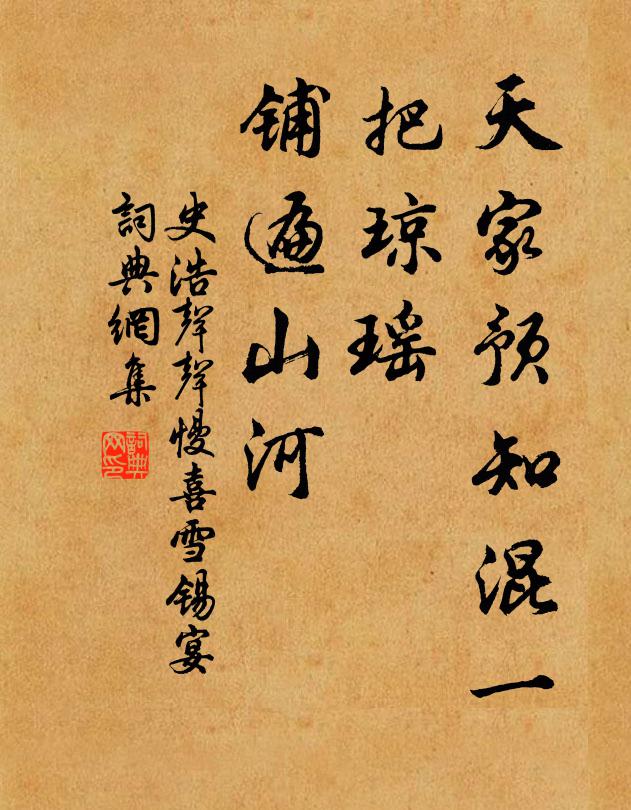 天家预知混一
把琼瑶
铺遍山河
史浩聲聲慢喜雪锡宴
詞典網集
詞典网印